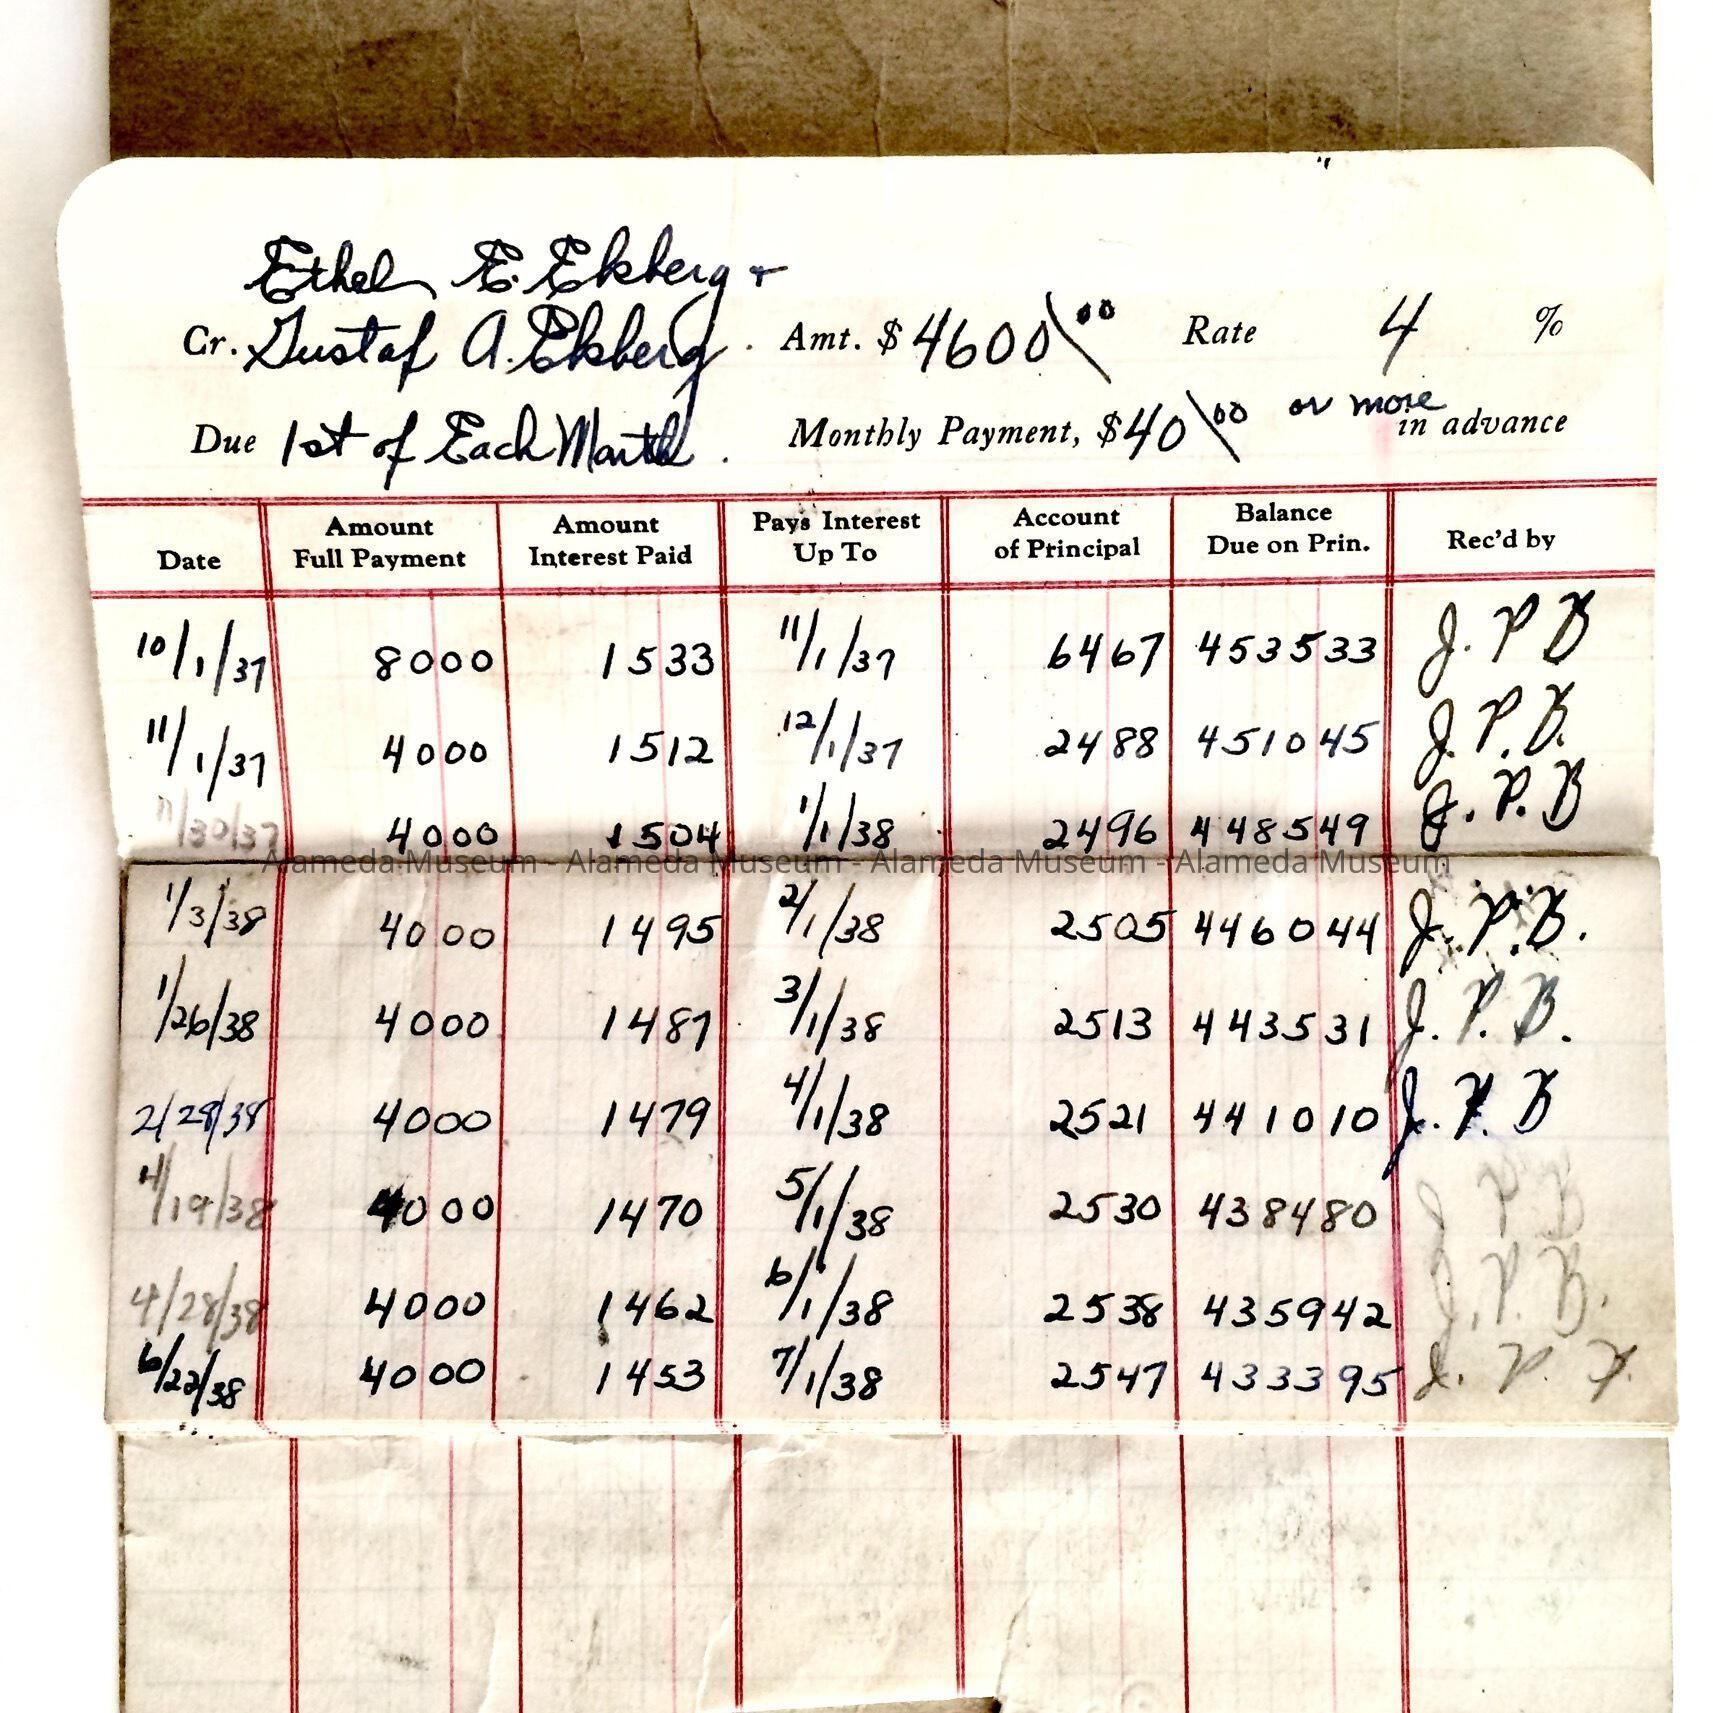 Ethel E. Ekberg +
Cr. Gustaf A. Ekberg . Amt. $ 4600\00 Rate 4 %
Due 1st of Each Month . Monthly Payment, $40\00 or more in advance
Date Amount Full Payment Amount Interest Paid Pays Interest Up To Account of Principal Balance Due on Prin. Rec'd by
10/1/37 8000 1533 11/1/37 6467 453533 J. P B
11/1/37 4000 1512 12/1/37 2488 451045 J. P. B.
11/30/37 4000 1504 1/1/38 2496 448549 J. P. B
Alameda Museum - Alameda Museum - Alameda Museum - Alameda Museum
1/3/38 4000 1495 2/1/38 2505 446044 J. P. B.
1/26/38 4000 1487 3/1/38 2513 443531 J. P. B.
2/28/38 4000 1479 4/1/38 2521 441010 J. P. B
4/19/38 4000 1470 5/1/38 2530 438480
4/28/38 4000 1462 6/1/38 2538 435942
6/22/38 4000 1453 7/1/38 2547 433395